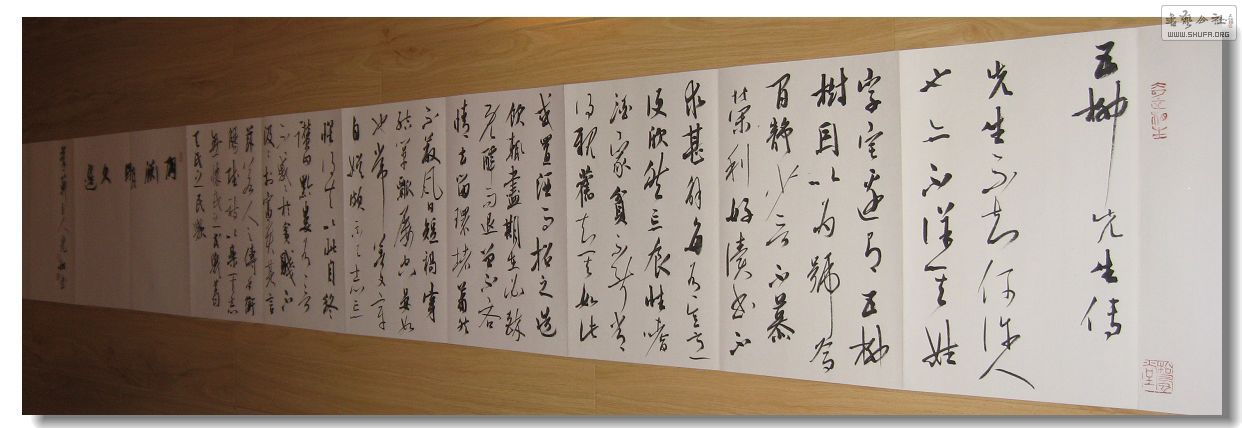 五柳先生传
先生不知何许人
也亦不详其姓
字宅边有五柳
樹因以为號焉
闲静少言不慕
荣利好读书不
求甚解每有会意
便欣然忘食性嗜
酒家貧不能常
得親舊知其如此
或置酒而招之造
饮輒盡期在必醉
既醉而退曾不吝
情去留環堵萧然
不蔽風日短褐穿
结箪瓢屡空晏如
也常著文章
自娱颇示己志忘
怀得失以此自终
讃曰黔娄有言
不慼慼於貧賤不
汲汲於富贵其言
兹若人之俦乎衔
觞賦诗以樂其志
無懷氏之民欤葛
天氏之民欤
陶淵明文選
书艺公社
WWW.SHUFA.ORG